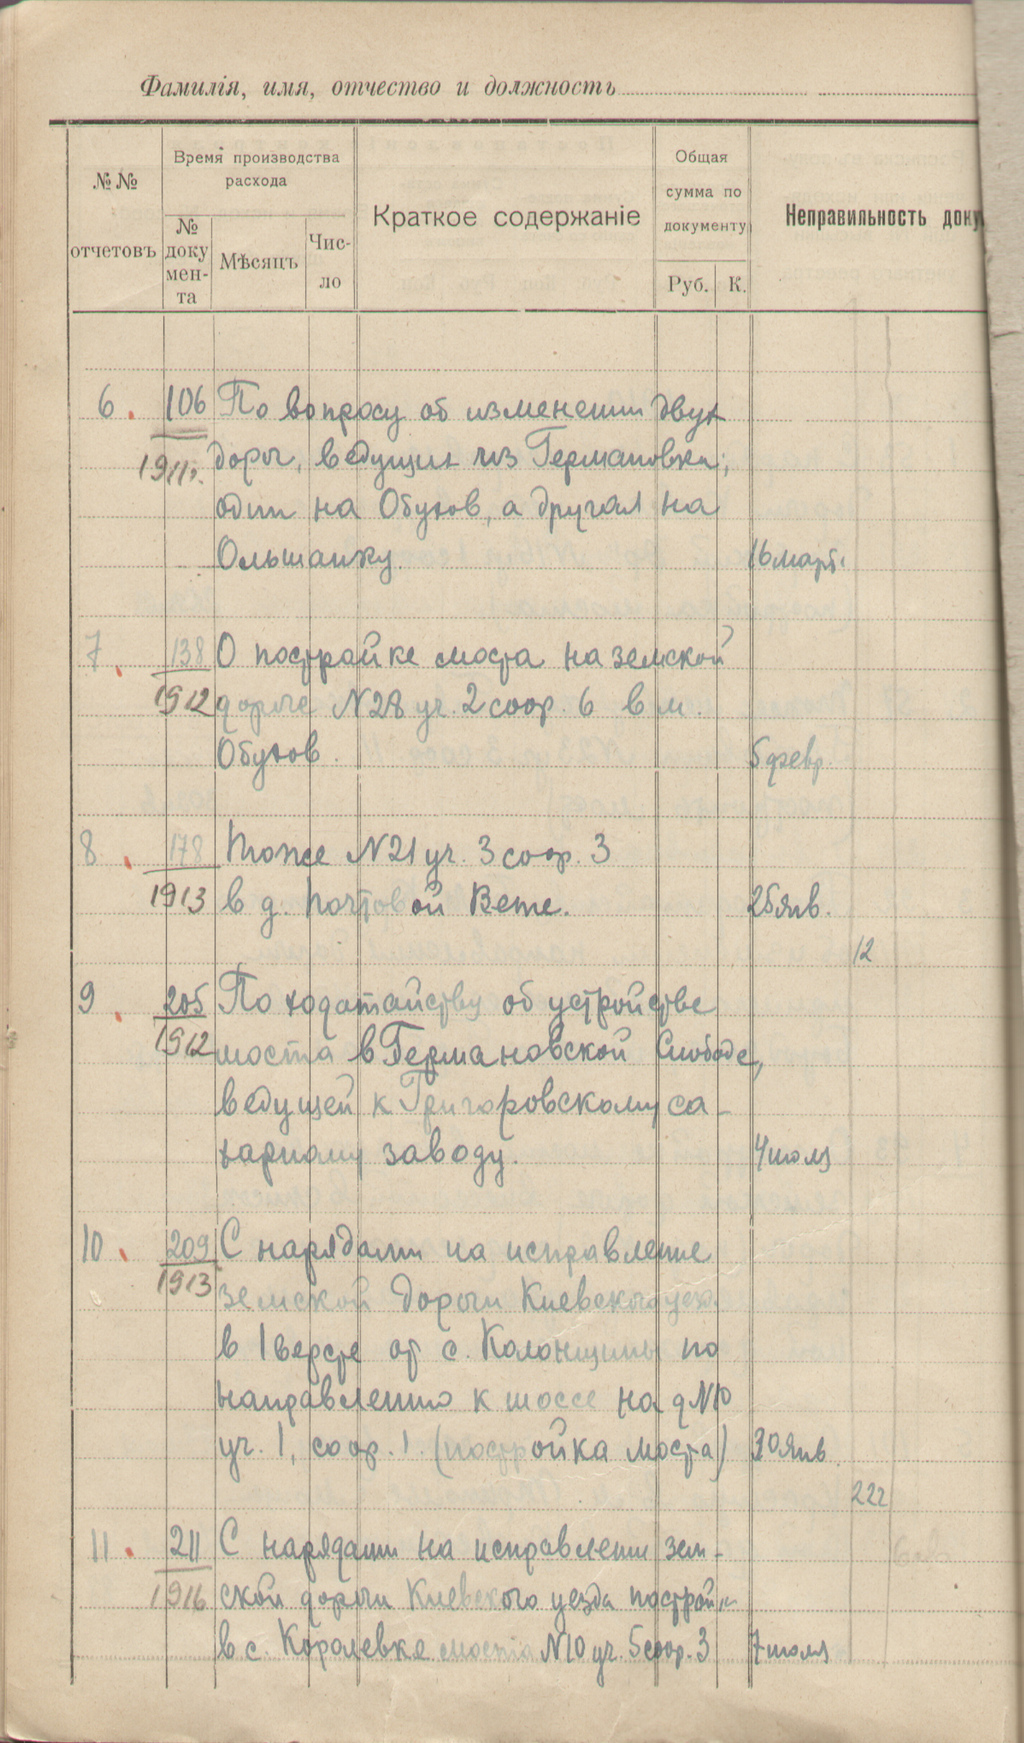 Фамилія, имя, отчество и должность
№№ отчетовъ
Время производства расхода
№ доку мен- та
Мѣсяцъ
Чис- ло
Краткое содержаніе
Общая сумма по документу
Руб. К.
Неправильность доку
6. 106 По вопросу об изменении двух
1911. дорог, ведущих из Германовки;
один на Обухов, а другая на
Ольшанку. 16 март.
7. 138 О постройке моста на земской
1912 дороге N28 уч. 2 соор. 6 в м.
Обухов. 5 февр.
8. 178 Тоже N21 уч. 3 соор. 3
1913 в д. Почтовой Вете. 25 янв.
12
9. 205 По ходатайству об устройстве
1912 моста в Германовской Слободе,
ведущей к Григоровскому са-
харному заводу. 4 июля
10. 209 С нарядами на исправление
1913 земской дороги Киевского уез.
в 1 версте от с. Колонщины по
направлению к шоссе на д N10
уч. 1, соор. 1. (постройка моста) 30 янв
222
11. 211 С нарядами на исправлени зем-
1916 ской дороги Киевского уезда построй
в с. Королевке моста N10 уч. 5 соор. 3 7 июля